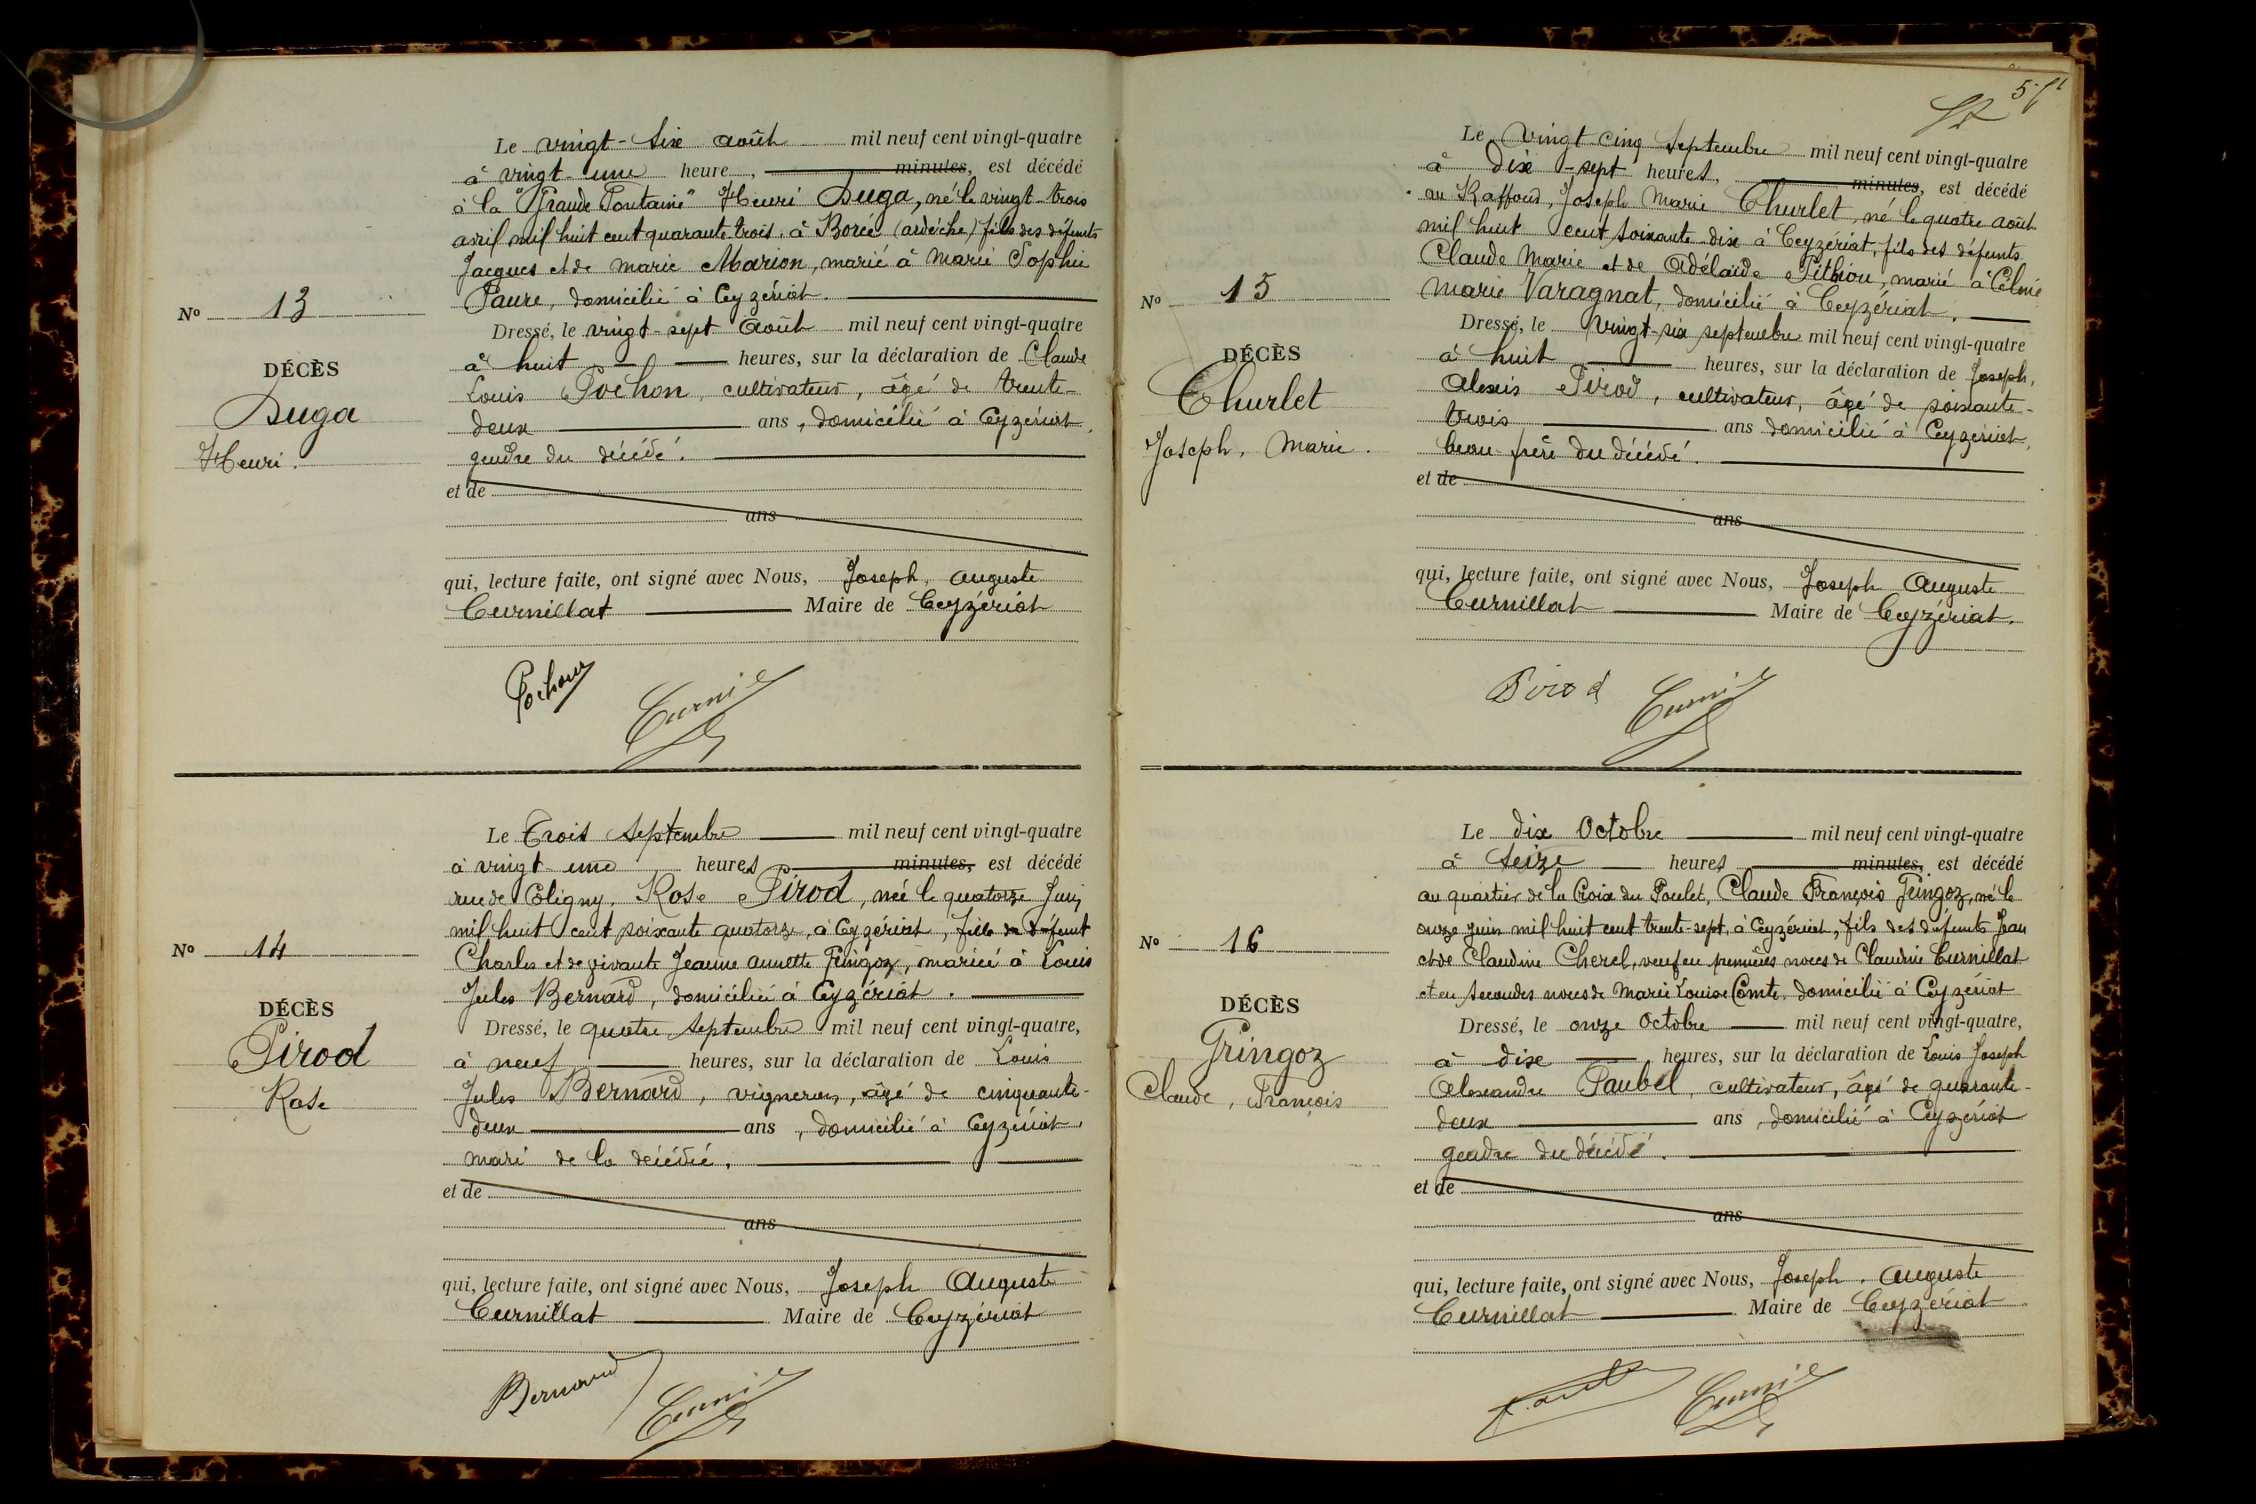 Le vingt-six août mil neuf cent vingt-quatre
à vingt-une heure, minutes, est décédé
à la "Grande Fontaine" Henri Duga, né le vingt-trois
avril mil huit cent quarante-trois, à Borée (ardèche) fils des défunts
Jacques et de marie Marion, marié à Marie Sophie
Faure, domicilié à Ceyzériat.
Dressé, le vingt-sept août mil neuf cent vingt-quatre
à huit heures, sur la déclaration de Claude
Louis Pochon, cultivateur, âgé de trente-
deux ans, domicilié à Ceyzériat,
gendre du décédé.
et de
ans
qui, lecture faite, ont signé avec Nous, Joseph, Auguste
Curnillat Maire de Ceyzériat
Nº 13
DÉCÈS
Duga
Henri.
Pochon
Le trois septembre mil neuf cent vingt-quatre
à vingt-une heures minutes, est décédé
rue de Coligny, Rose Pirod, née le quatorze Juin
mil huit cent soixante quatorze, à Ceyzériat, fille de défunt
Charles et de vivante Jeanne annette Gringoz, mariée à Louis
Jules Bernard, domicilié à Ceyzériat.
Dressé, le quatre septembre mil neuf cent vingt-quatre,
à neuf heures, sur la déclaration de Louis
Jules Bernard, vigneron, âgé de cinquante-
deux ans, domicilié à Ceyzériat,
mari de la décédée.
et de
ans
qui, lecture faite, ont signé avec Nous, Joseph Auguste
Curnillat Maire de Ceyzériat
Nº 14
DÉCÈS
Pirod
Rose
Bernard
Le vingt-cinq septembre mil neuf cent vingt-quatre
à dix-sept heures, minutes, est décédé
au Raffour, Joseph Marie Churlet, né le quatre août
mil huit cent soixante-dix à Ceyzériat, fils des défunts
Claude Marie et de Adélaïde Pithiou, marié à Célonie
Marie Varagnat, domicilié à Ceyzériat.
Dressé, le vingt-six septembre mil neuf cent vingt-quatre
à huit heures, sur la déclaration de Joseph,
Alexis Pirod, cultivateur, âgé de soixante-
trois ans domicilié à Ceyzériat,
beau-frère du décédé.
et de
ans
qui, lecture faite, ont signé avec Nous, Joseph Auguste
Curnillat Maire de Ceyzériat.
Nº 15
DÉCÈS
Churlet
Joseph, Marie.
Pirod
Le dix Octobre mil neuf cent vingt-quatre
à seize heures minutes, est décédé
au quartier de la Croix du Poulet, Claude François Gringoz, né le
onze juin mil huit cent trente-sept, à Ceyzériat, fils des défunts Jean
et de Claudine Cherel, veuf en premières noces de Claudine Curnillat
et en secondes noces de Marie Louise Comte, domicilié à Ceyzériat
Dressé, le onze Octobre mil neuf cent vingt-quatre,
à dix heures, sur la déclaration de Louis Joseph
Alexandre Paubel, cultivateur, âgé de quarante-
deux ans, domicilié à Ceyzériat
gendre du décédé.
et de
ans
qui, lecture faite, ont signé avec Nous, Joseph, Auguste
Curnillat Maire de Ceyzériat
Nº 16
DÉCÈS
Gringoz
Claude, François